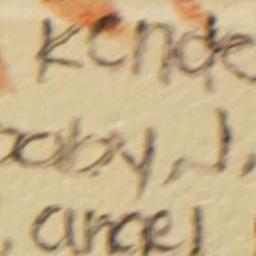 Kende
baby, J,
, angel